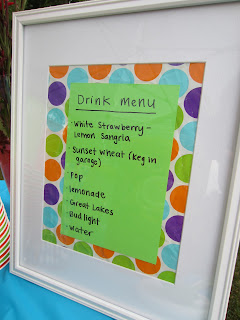 Drink menu
· White Strawberry -
Lemon Sangria
· Sunset Wheat (keg in
garage)
· Pop
· lemonade
· Great Lakes
· Bud light
· Water